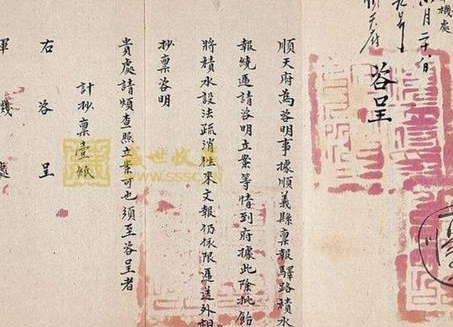 機處
月二十日
順天府
咨呈
順天府為咨明事據順義縣稟報驛路積水
報繞遞請咨明立案等情到府據此除批飭
將積水設法疏消往來文報仍依限遞送外相
抄稟咨明
貴處請煩查照立案可也須至咨呈者
計抄稟壹紙
右咨呈
軍機處
盛世收藏